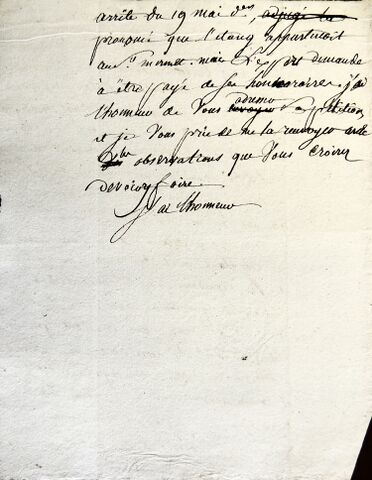 arrêté du 19 mai der adjugé la
prononcé que l'étang appartenoit
au Sr mermet. mais L'expert demande
à être payé de ses honoraires. j'ai
l'honneur de Vous adresser sa pétition
et je Vous prie de me la renvoyer avec
les observations que Vous croirez
devoir y faire.
J'ai l'honneur